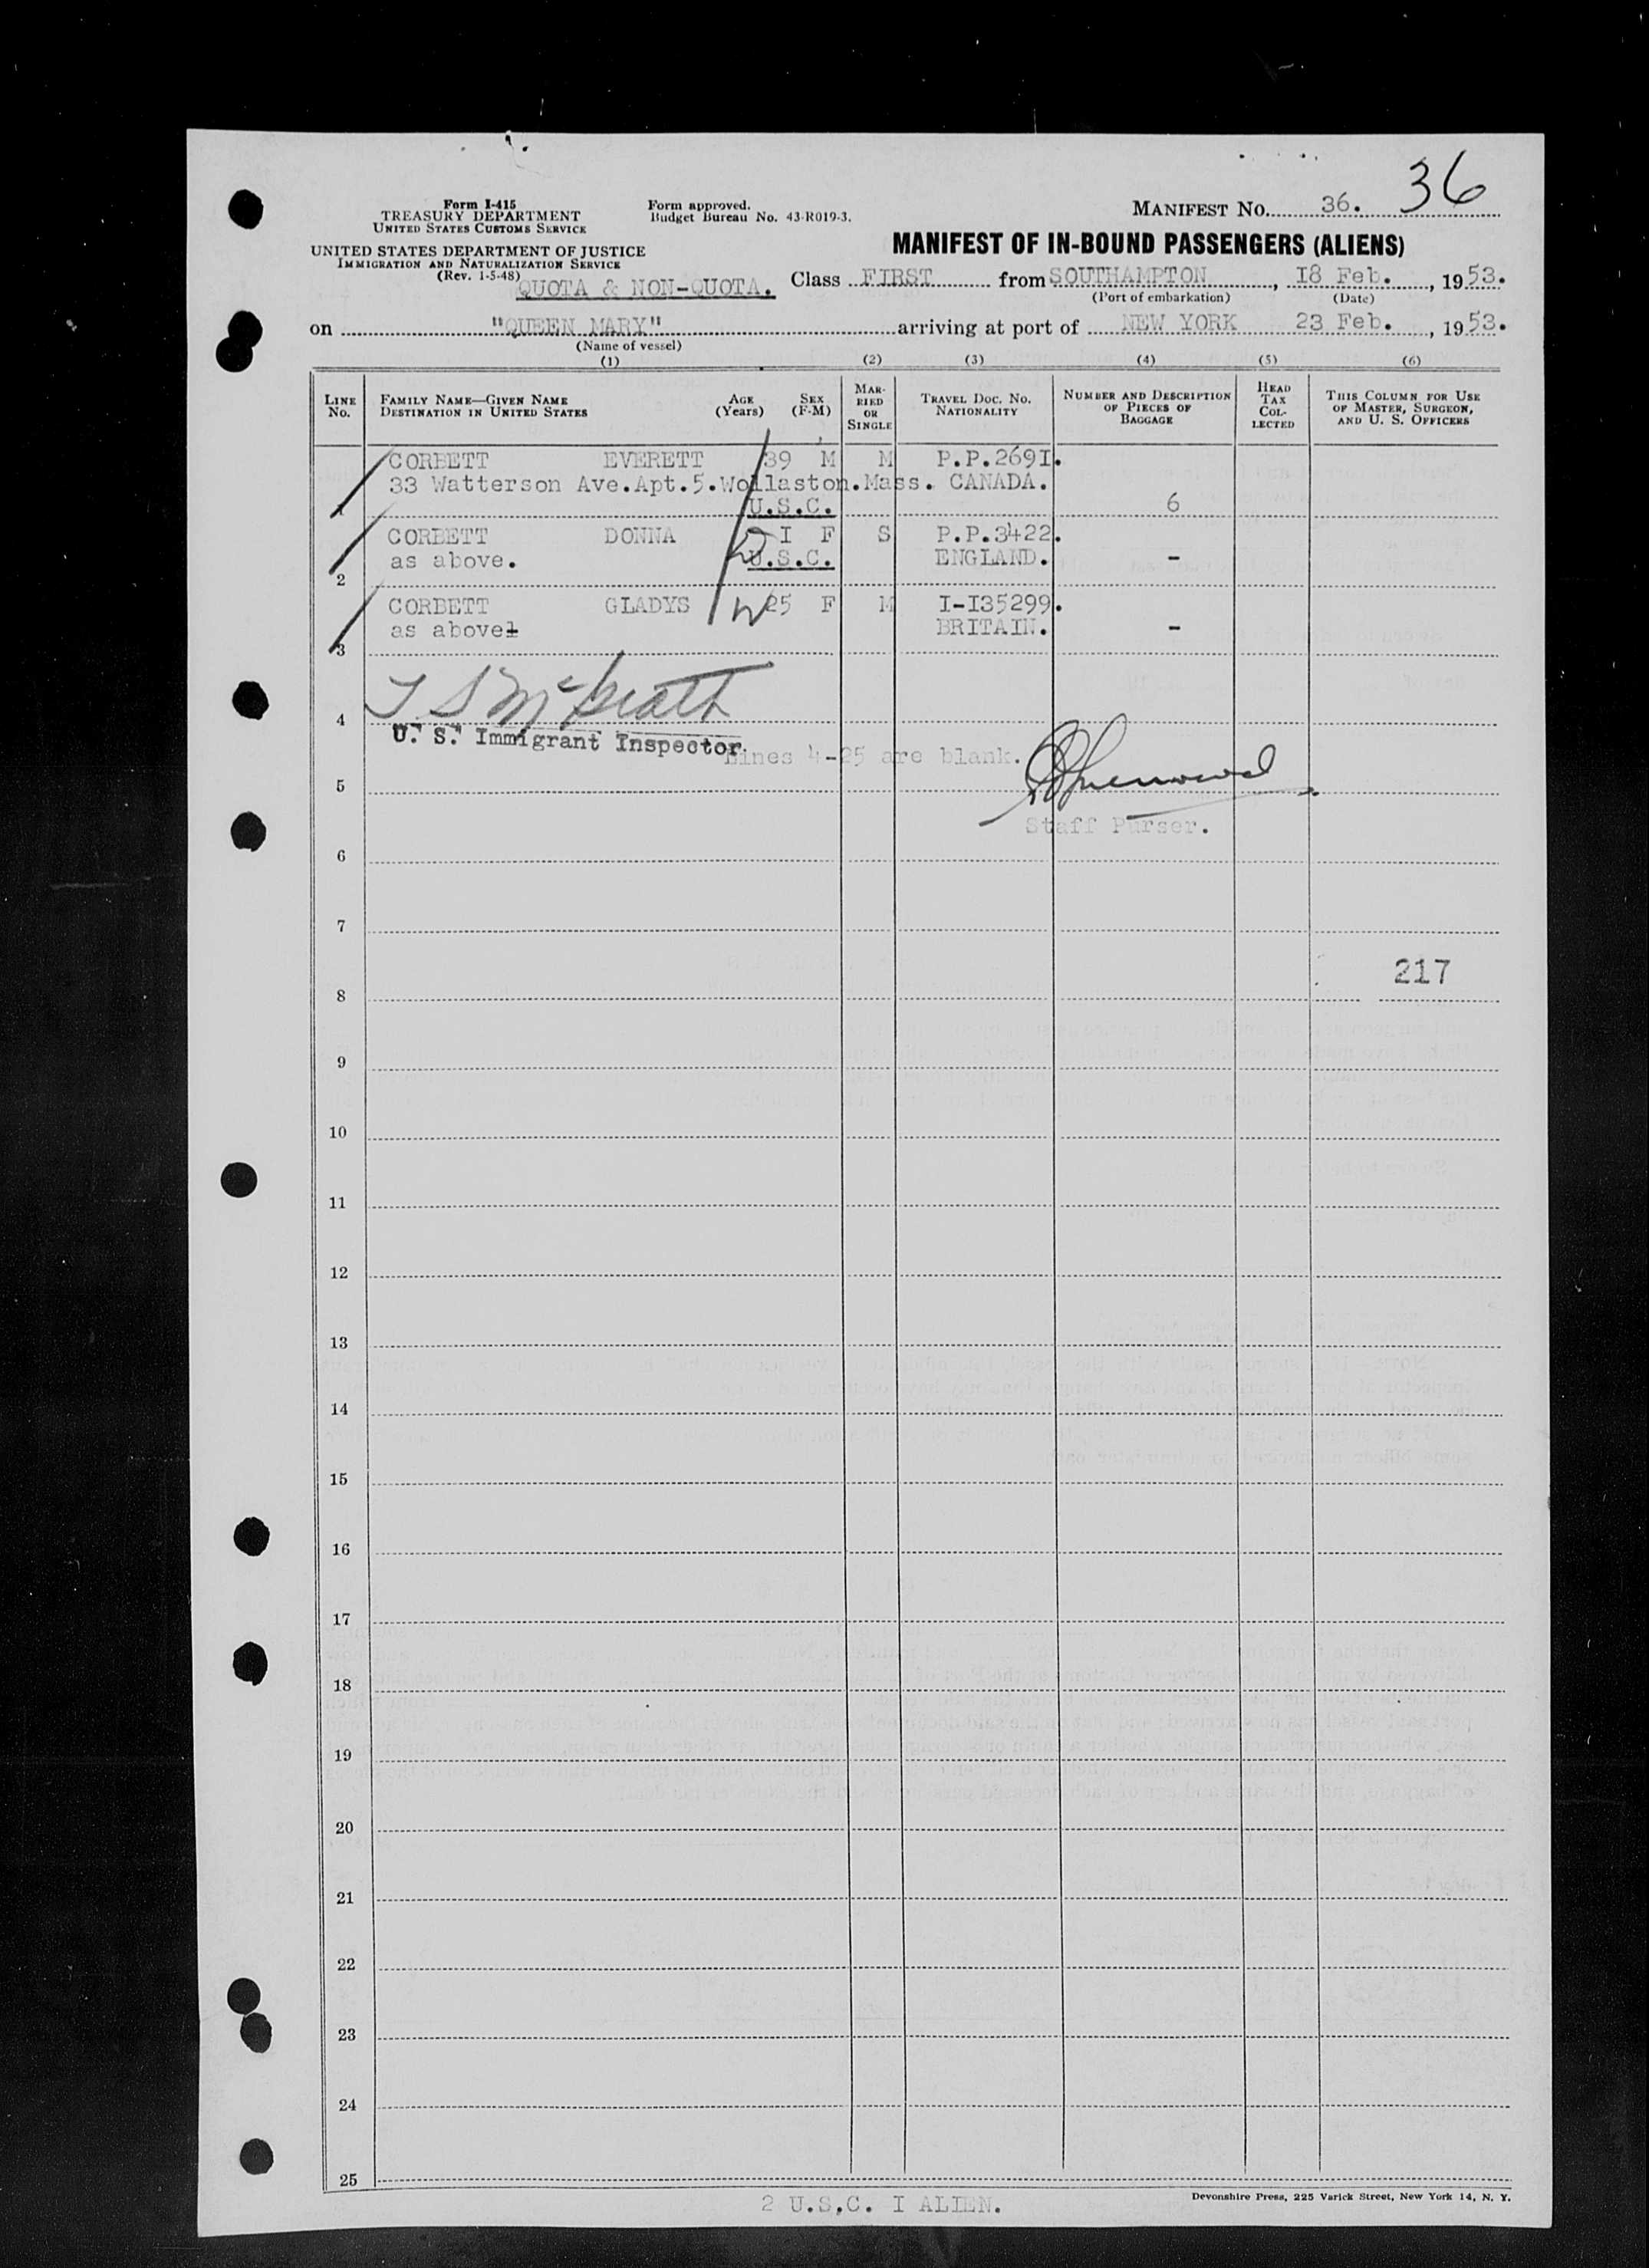 36
Form I-415
TREASURY DEPARTMENT
UNITED STATES CUSTOMS SERVICE
Form approved.
Budget Bureau No. 43-R019-3.
MANIFEST NO. 36.
UNITED STATES DEPARTMENT OF JUSTICE
IMMIGRATION AND NATURALIZATION SERVICE
(Rev. 1-5-48)
MANIFEST OF IN-BOUND PASSENGERS (ALIENS)
QUOTA & NON-QUOTA. Class FIRST from SOUTHAMPTON, 18 Feb., 1953.
(Port of embarkation) (Date)
on "QUEEN MARY" arriving at port of NEW YORK 23 Feb., 1953.
(Name of vessel)
(1) (2) (3) (4) (5) (6)
LINE NO. FAMILY NAME—GIVEN NAME DESTINATION IN UNITED STATES AGE (YEARS) SEX (F-M) MARRIED OR SINGLE TRAVEL DOC. NO. NATIONALITY NUMBER AND DESCRIPTION OF PIECES OF BAGGAGE HEAD TAX COLLECTED THIS COLUMN FOR USE OF MASTER, SURGEON, AND U. S. OFFICERS
CORBETT EVERETT 39 M M P.P.2691.
33 Watterson Ave.Apt.5.Wollaston.Mass. CANADA.
1 U.S.C. 6
CORBETT DONNA I F S P.P.3422.
as above. U.S.C. ENGLAND. -
2
CORBETT GLADYS 25 F M I-I35299.
as above BRITAIN. -
3
T S McGrath
4
U. S. Immigrant Inspector.
Lines 4-25 are blank.
5
Staff Purser.
6
7
217
8
9
10
11
12
13
14
15
16
17
18
19
20
21
22
23
24
25
2 U.S.C. I ALIEN.
Devonshire Press, 225 Varick Street, New York 14, N. Y.